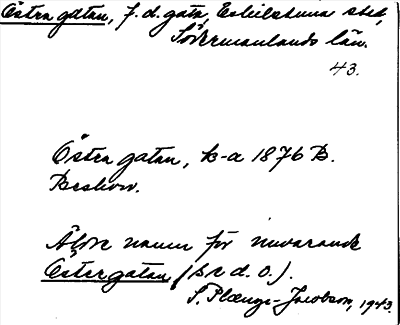 Östra gatan, f. d. gata, Eskilstuna stad,
Södermanlands län.
43.
Östra gatan, k-a 1876 B.
Beskow.
Äldre namn för nuvarande
Östergatan (s. d. o.).
S. Plænge-Jacobson, 1943.